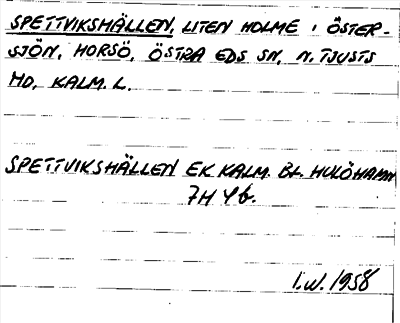 SPETTVIKSHÄLLEN, LITEN HOLME I ÖSTER-
SJÖN, HORSÖ, ÖSTRA EDS SN, N. TJUSTS
HD, KALM. L.
SPETTVIKSHÄLLEN EK KALM. BL. HULÖHAMN
7H 4b.
I.W. 1958